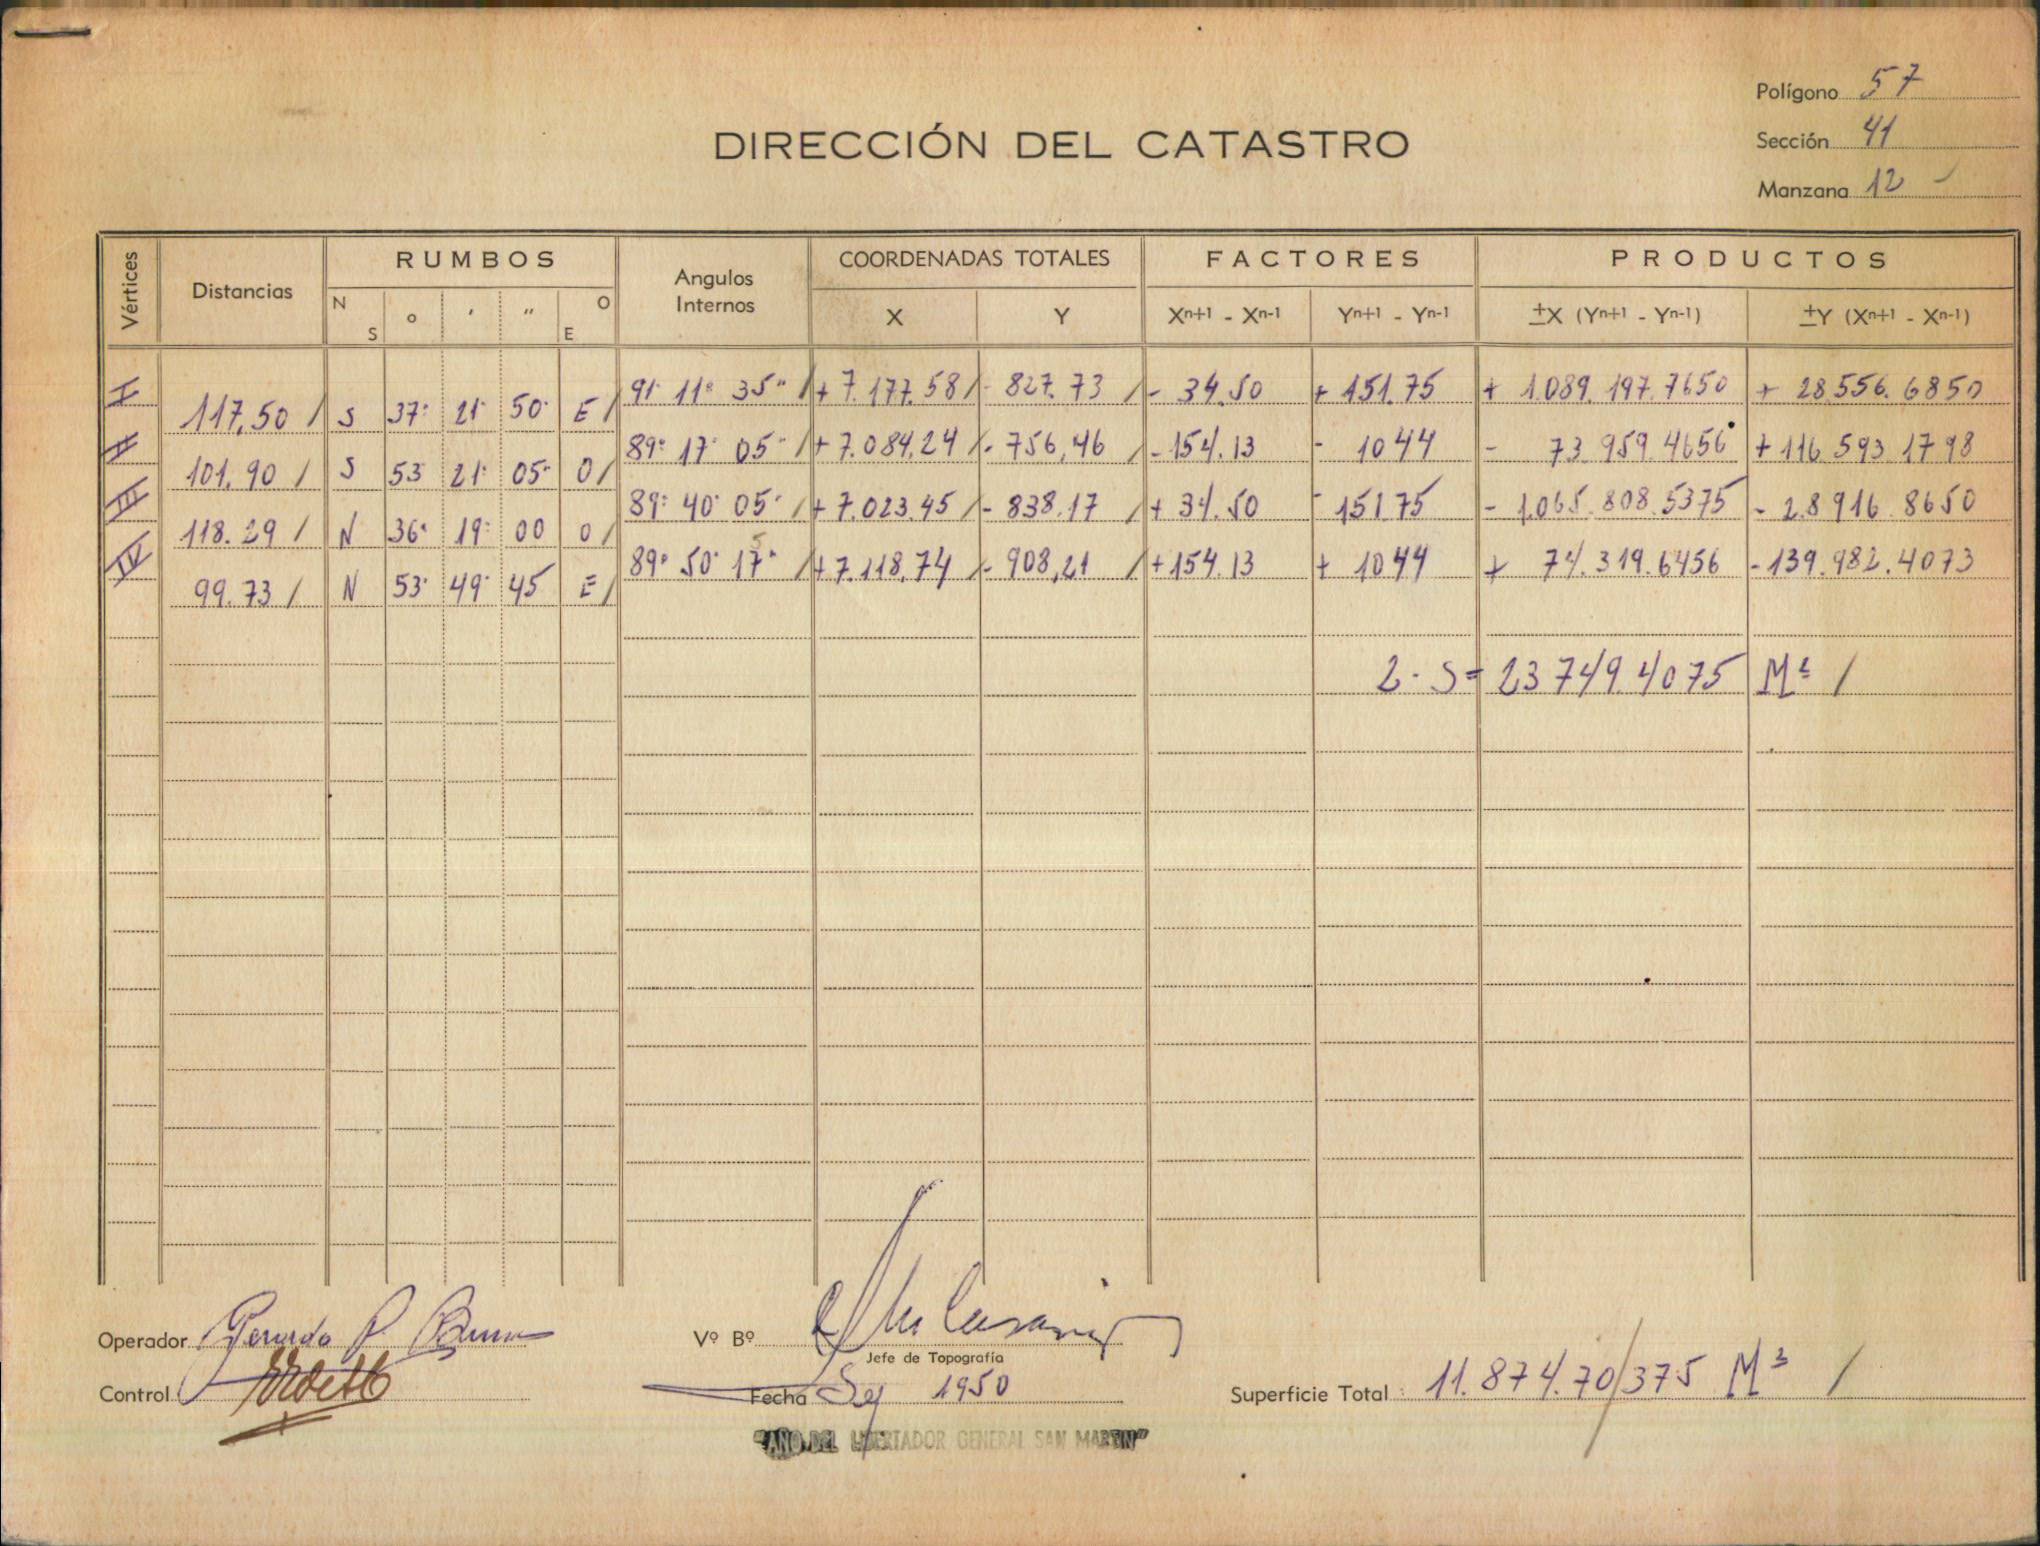 Polígono 57
DIRECCIÓN DEL CATASTRO
Sección 41
Manzana 12
Vértices Distancias RUMBOS N S o ' " O E Angulos Internos COORDENADAS TOTALES X Y FACTORES Xn+1 - Xn-1 Yn+1 - Yn-1 PRODUCTOS ±X (Yn+1 - Yn-1) ±Y (Xn+1 - Xn-1)
I 91° 11' 35" + 7.177.58 - 827.73 - 34.50 + 151.75 + 1.089.197.7650 + 28.556.6850
117,50 S 37° 21' 50" E
II 89° 17' 05" + 7.084,24 - 756,46 - 154.13 - 1044 - 73.959.4656 + 116.593.1798
101.90 S 53 21' 05" O
III 89° 40' 05" + 7.023.45 - 838.17 + 34.50 - 151.75 - 1.065.808.5375 - 28916.8650
118.29 N 36° 19' 00 O
IV 89° 50' 17" + 7.118,74 - 908,21 + 154.13 + 1044 + 74.319.6456 - 139.982.4073
99.73 N 53° 49' 45 E
2 · S = 23749.4075 M²
Operador Gerardo P.
Vº Bº
Jefe de Topografía
Control
Fecha 1950
Superficie Total : 11.874.70/375 M²
"AÑO DEL LIBERTADOR GENERAL SAN MARTIN"